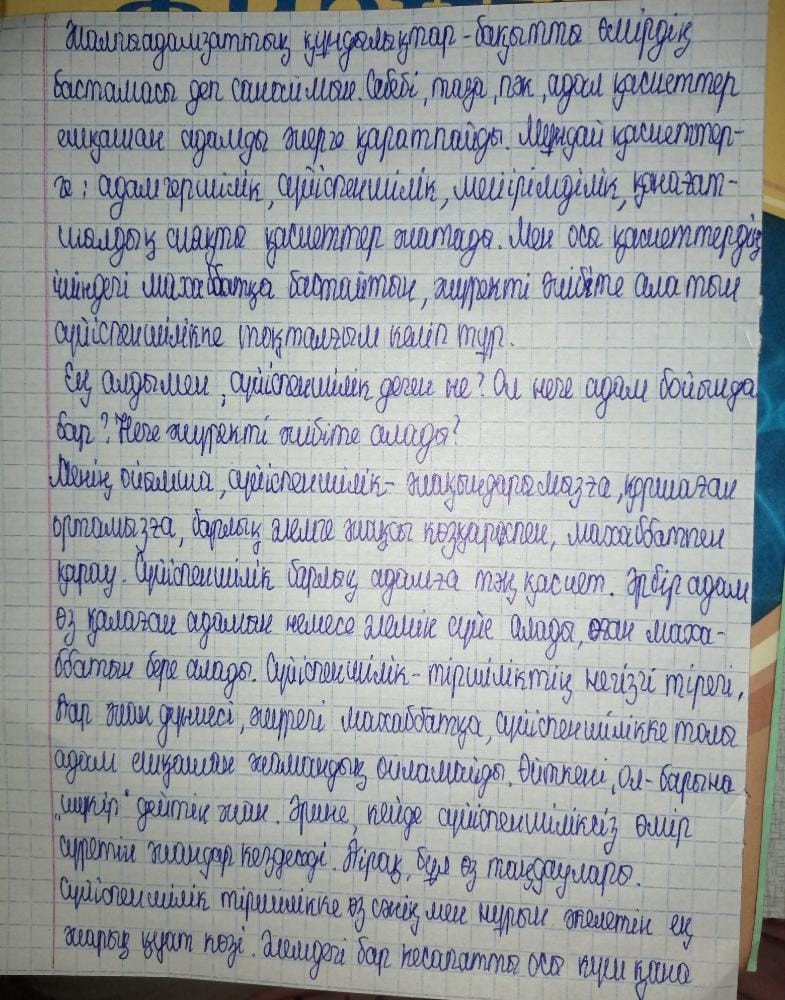 Жалпыадамзаттық құндылықтар - бақытты өмірдің
бастамасы деп санаймын. Себебі, таза, пәк, адал қасиеттер
ешқашан адамды жерге қаратпайды. Мұндай қасиеттер-
ге: адамгершілік, сүйіспеншілік, мейірімділік, қанағат-
шалдық сияқты қасиеттер жатады. Мен осы қасиеттердің
ішіндегі махаббатқа бастайтын, жүректі жібіте алатын
сүйіспеншілікке тоқталғым келіп тұр.
Ең алдымен, сүйіспеншілік деген не? Ол неге адам бойында
бар? Неге жүректі жібіте алады?
Менің ойымша, сүйіспеншілік - жақындарымызға, қоршаған
ортамызға, барлық әлемге жақсы көзқараспен, махаббатпен
қарау. Сүйіспеншілік барлық адамға тән қасиет. Әрбір адам
өз қалаған адамын немесе әлемін сүйе алады, оған маха-
ббатын бере алады. Сүйіспеншілік - тіршіліктің негізгі тірегі.
Жан дүниесі, жүрегі махаббатқа, сүйіспеншілікке толы
адам ешқашан жамандық ойламайды. Өйткені, ол - барына
„шүкір" дейтін жан. Әрине, кейде сүйіспеншіліксіз өмір
сүретін жандар кездеседі. Бірақ, бұл өз таңдаулары.
Сүйіспеншілік тіршілікке өз сәнің мен нұрын әкелетін ең
жарық қуат көзі. Әлемдегі бар кесапатты осы күш қана